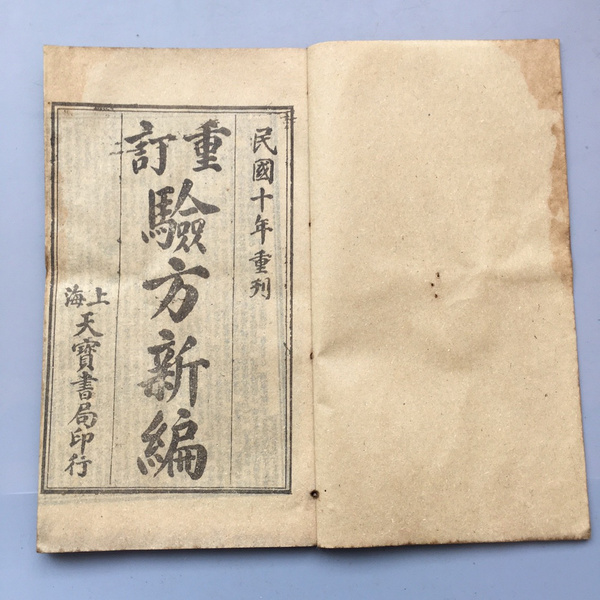 民國十年重刋
重訂
驗方新編
上海
天寶書局印行